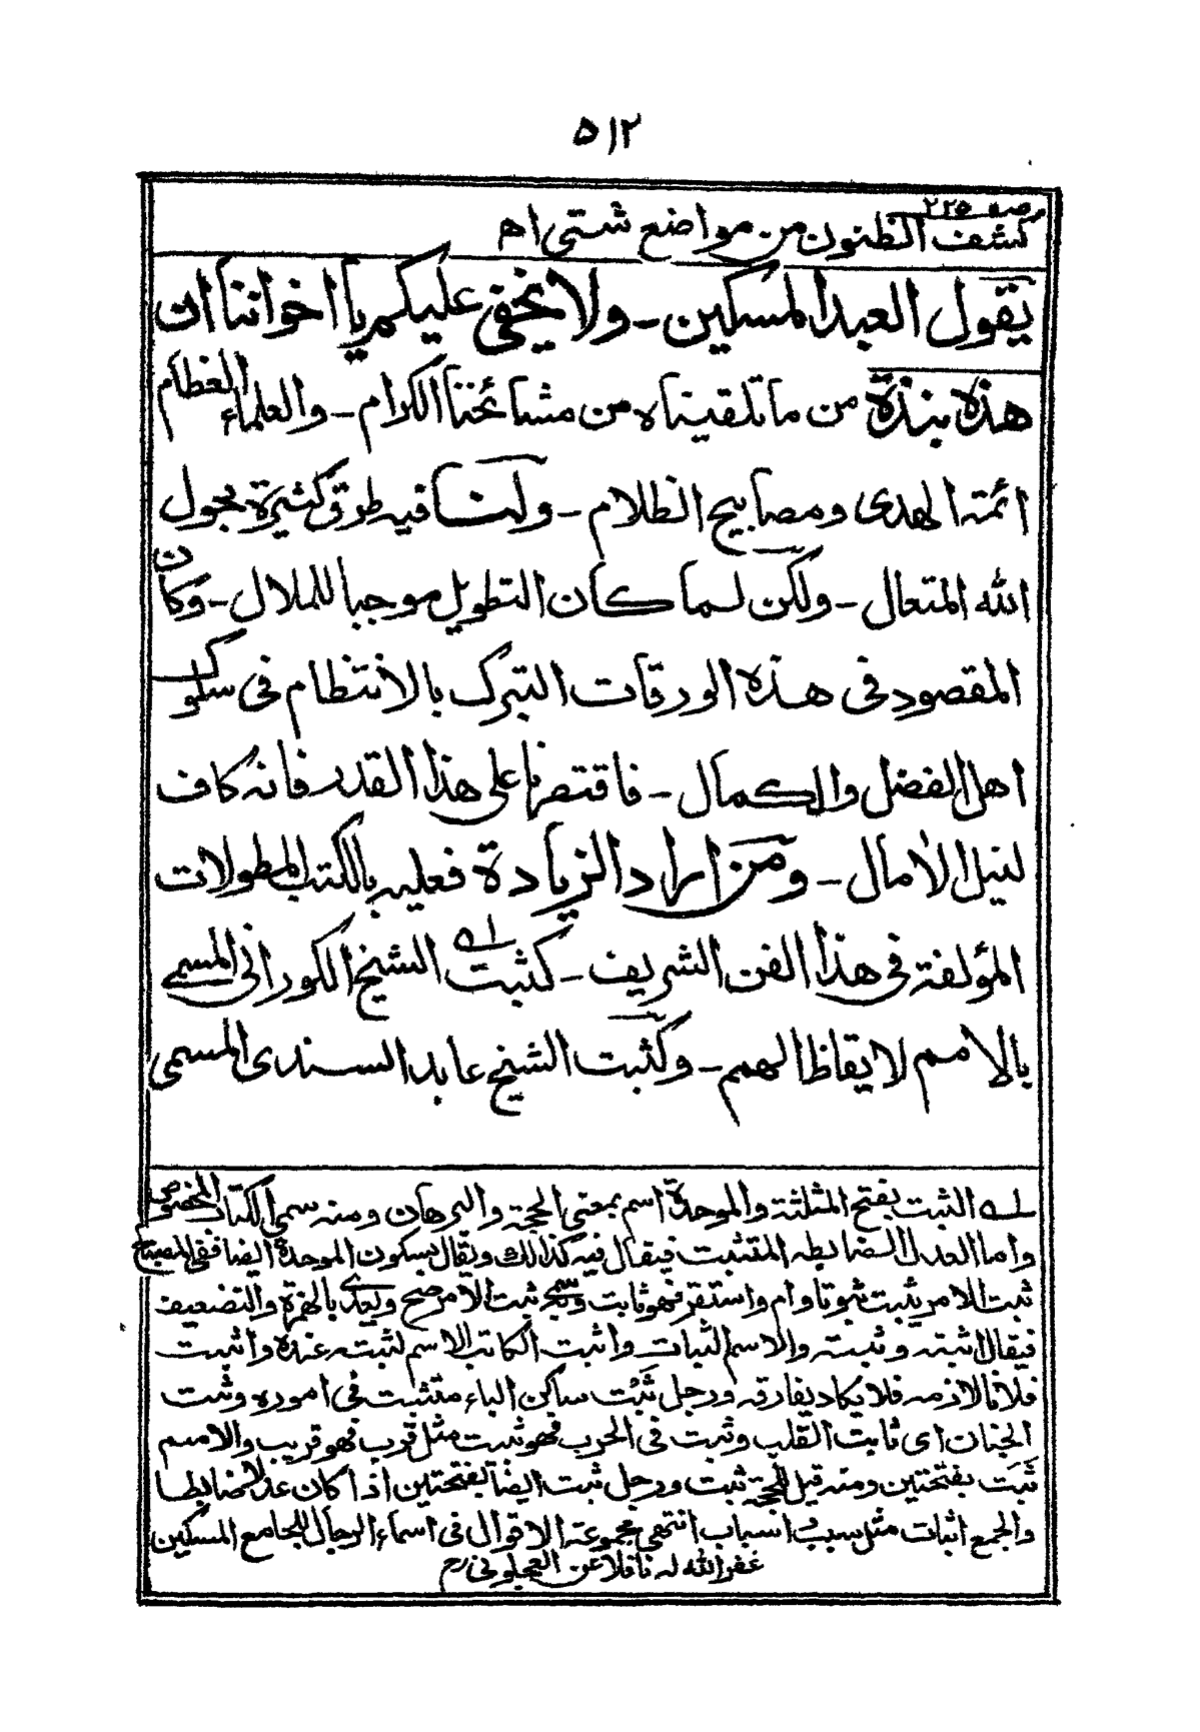 ۵۱۲
صه ۲۲۵
كشف الظنون من مواضع شتى اه
يقول العبد المسكين - ولا يخفى عليكم يا اخواننا ان
هذه نبذة من ما تلقيناه من مشائخنا الكرام - والعلماء العظام
ائمة الهدى ومصابيح الظلام - ولنا فيه طرق كثيرة بحول
الله المتعال - ولكن لما كان التطويل موجبا للملال - وكان
المقصود فى هذه الورقات التبرك بالانتظام فى سلوك
اهل الفضل والكمال - فاقتصرنا على هذا القدر فانه كاف
لنيل الامال - ومن اراد الزيادة فعليه بالكتب المطولات
المؤلفة فى هذا الفن الشريف - كثبت ا؎ الشيخ الكورانى المسمى
بالامم لايقاظ الهمم - وكثبت الشيخ عابد السندى المسمى
ا؎ الثبت بفتح المثلثة والموحدة اسم بمعنى الحجة والبرهان ومنه سمى الكتاب المخصوص
واما العدل الضابط المتثبت فيقال فيه كذالك ويقال بسكون الموحدة ايضا ففى المصباح
ثبت الامر يثبت ثبوتا دام واستقر فهو ثابت وثبت الامر صح ويعدى بالهمزة والتضعيف
فيقال اثبته وثبته والاسم الثبات واثبت الكاتب الاسم لثبته عنده واثبت
فلانا لازمه فلا يكاد يفارقه ورجل ثَبْت ساكن الباء متثبت فى اموره وثبت
الجنان اى ثابت القلب وثبت فى الحرب فهو ثبيت مثل قرب فهو قريب والاسم
ثَبَت بفتحتين ومنه قيل للحجة ثبت ورجل ثبت ايضا بفتحتين اذا كان عدلا ضابطا
والجمع اثبات مثل سبب واسباب انتهى مجموعة الاقوال فى اسماء الرجال للجامع المسكين
غفر الله له ناقلا عن العجلونى رح